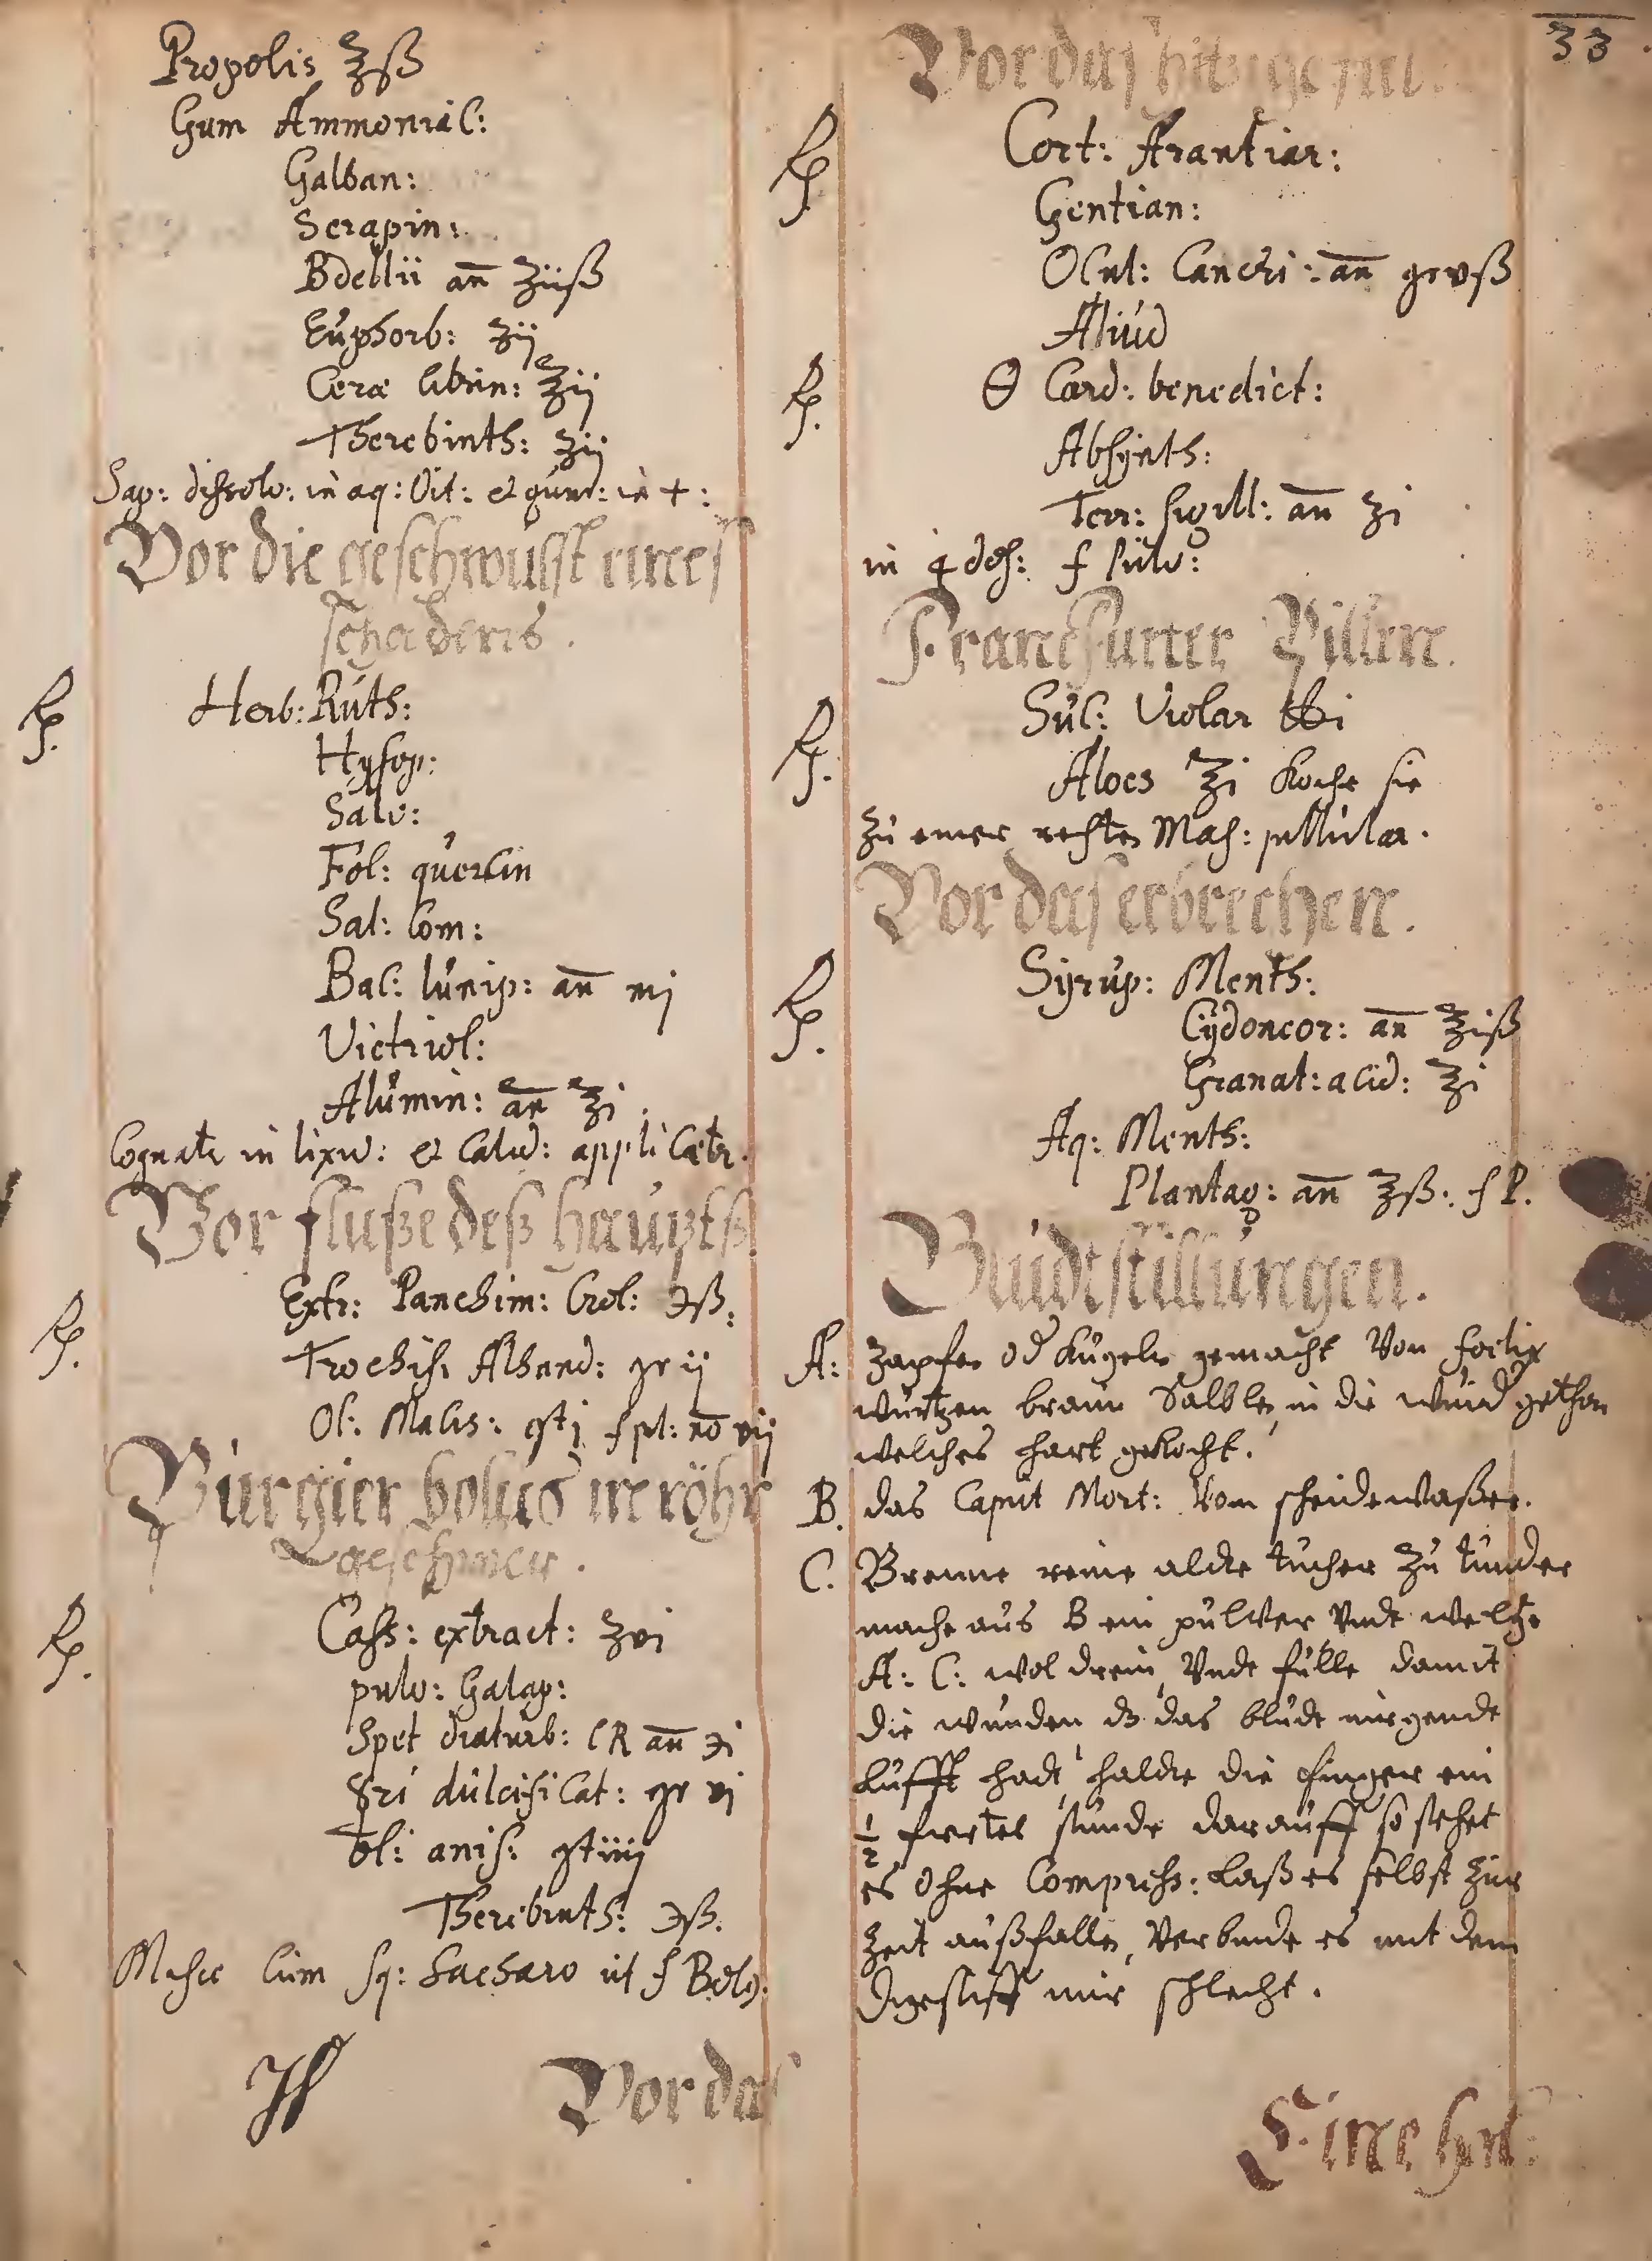 33
Propolis ℥ß
Gum Ammoniac:
Galban:
Serapin:
Bdellii an̄ ʒiiß
Euphorb: ʒij
Ceræ Citrin: ℥ij
Therebinth: ʒij
Sap: dissolv: in aq: Vit: et
Vor die geschwulst eines
schadens.
Rp. Herb: Ruth:
Hysop:
Salv:
Fol: quercin
Sal: Com:
Bac: Iunip: an̄ mj
Victriol:
Alumin: an̄ ℥i
in lixiv: et Calid: applicetr.
Vor fluße deß haupts
Rp. Extr: Panchim: Crol: ϶ß.
Trochisc Alhand: gr ij
Ol: Macis: gtj f pl: no vij
Purgier bolus in röhr
geschwer.
Rp. Cass: extract: ʒvi
pulv: Galap:
Spec diaturb: CR an̄ ϶i
☿ri dulcificat: gr vj
Ol: anis: gtiiij
Therebinth: ϶ß.
Misce Cum sq: Sacharo ut f Bolg.
Vor das
Vor das hitzige
Rp. Cort: Arantiar:
Gentian:
Ocul: Cancri: an̄ groß
Aliud
Rp. Ө Card: benedict:
Absÿnth:
Terr: sigill: an̄ ʒi
in 4 f pulv:
Franckfurter Pillen.
Rp. Suc: Violar ℔i
Aloes ℥i Koche sie
zu einer rechten Mass: pillular.
Vor das erbrechen.
Rp. Sÿrup: Menth:
Cÿdoneor: an̄ ℥iß
Granat: acid: ℥i
Aq: Menth:
Plantag: an̄ ℥ß: f P.
Bludtstillungen.
A: Zapfen od Kugeln gemacht Von
wurtzen braun Salblen in die wund gethan
welches hart gekocht.
B. das Caput Mort: Vom scheidewaßer.
C. Brenne reine aldte tücher zu tunder
mache aus B ein pulver Vndt weltze
A: C: wol drein, Vndt fülle damit
die wunden dz das bludt nirgendt
Lufft hadt, haldte die finger ein
½ firtel stunde darauff so stehet
es ohne Compress: Laß es selbst zur
Zeit außfallen, Verbinde es mit dem
Digestiff nur schlecht.
Eine